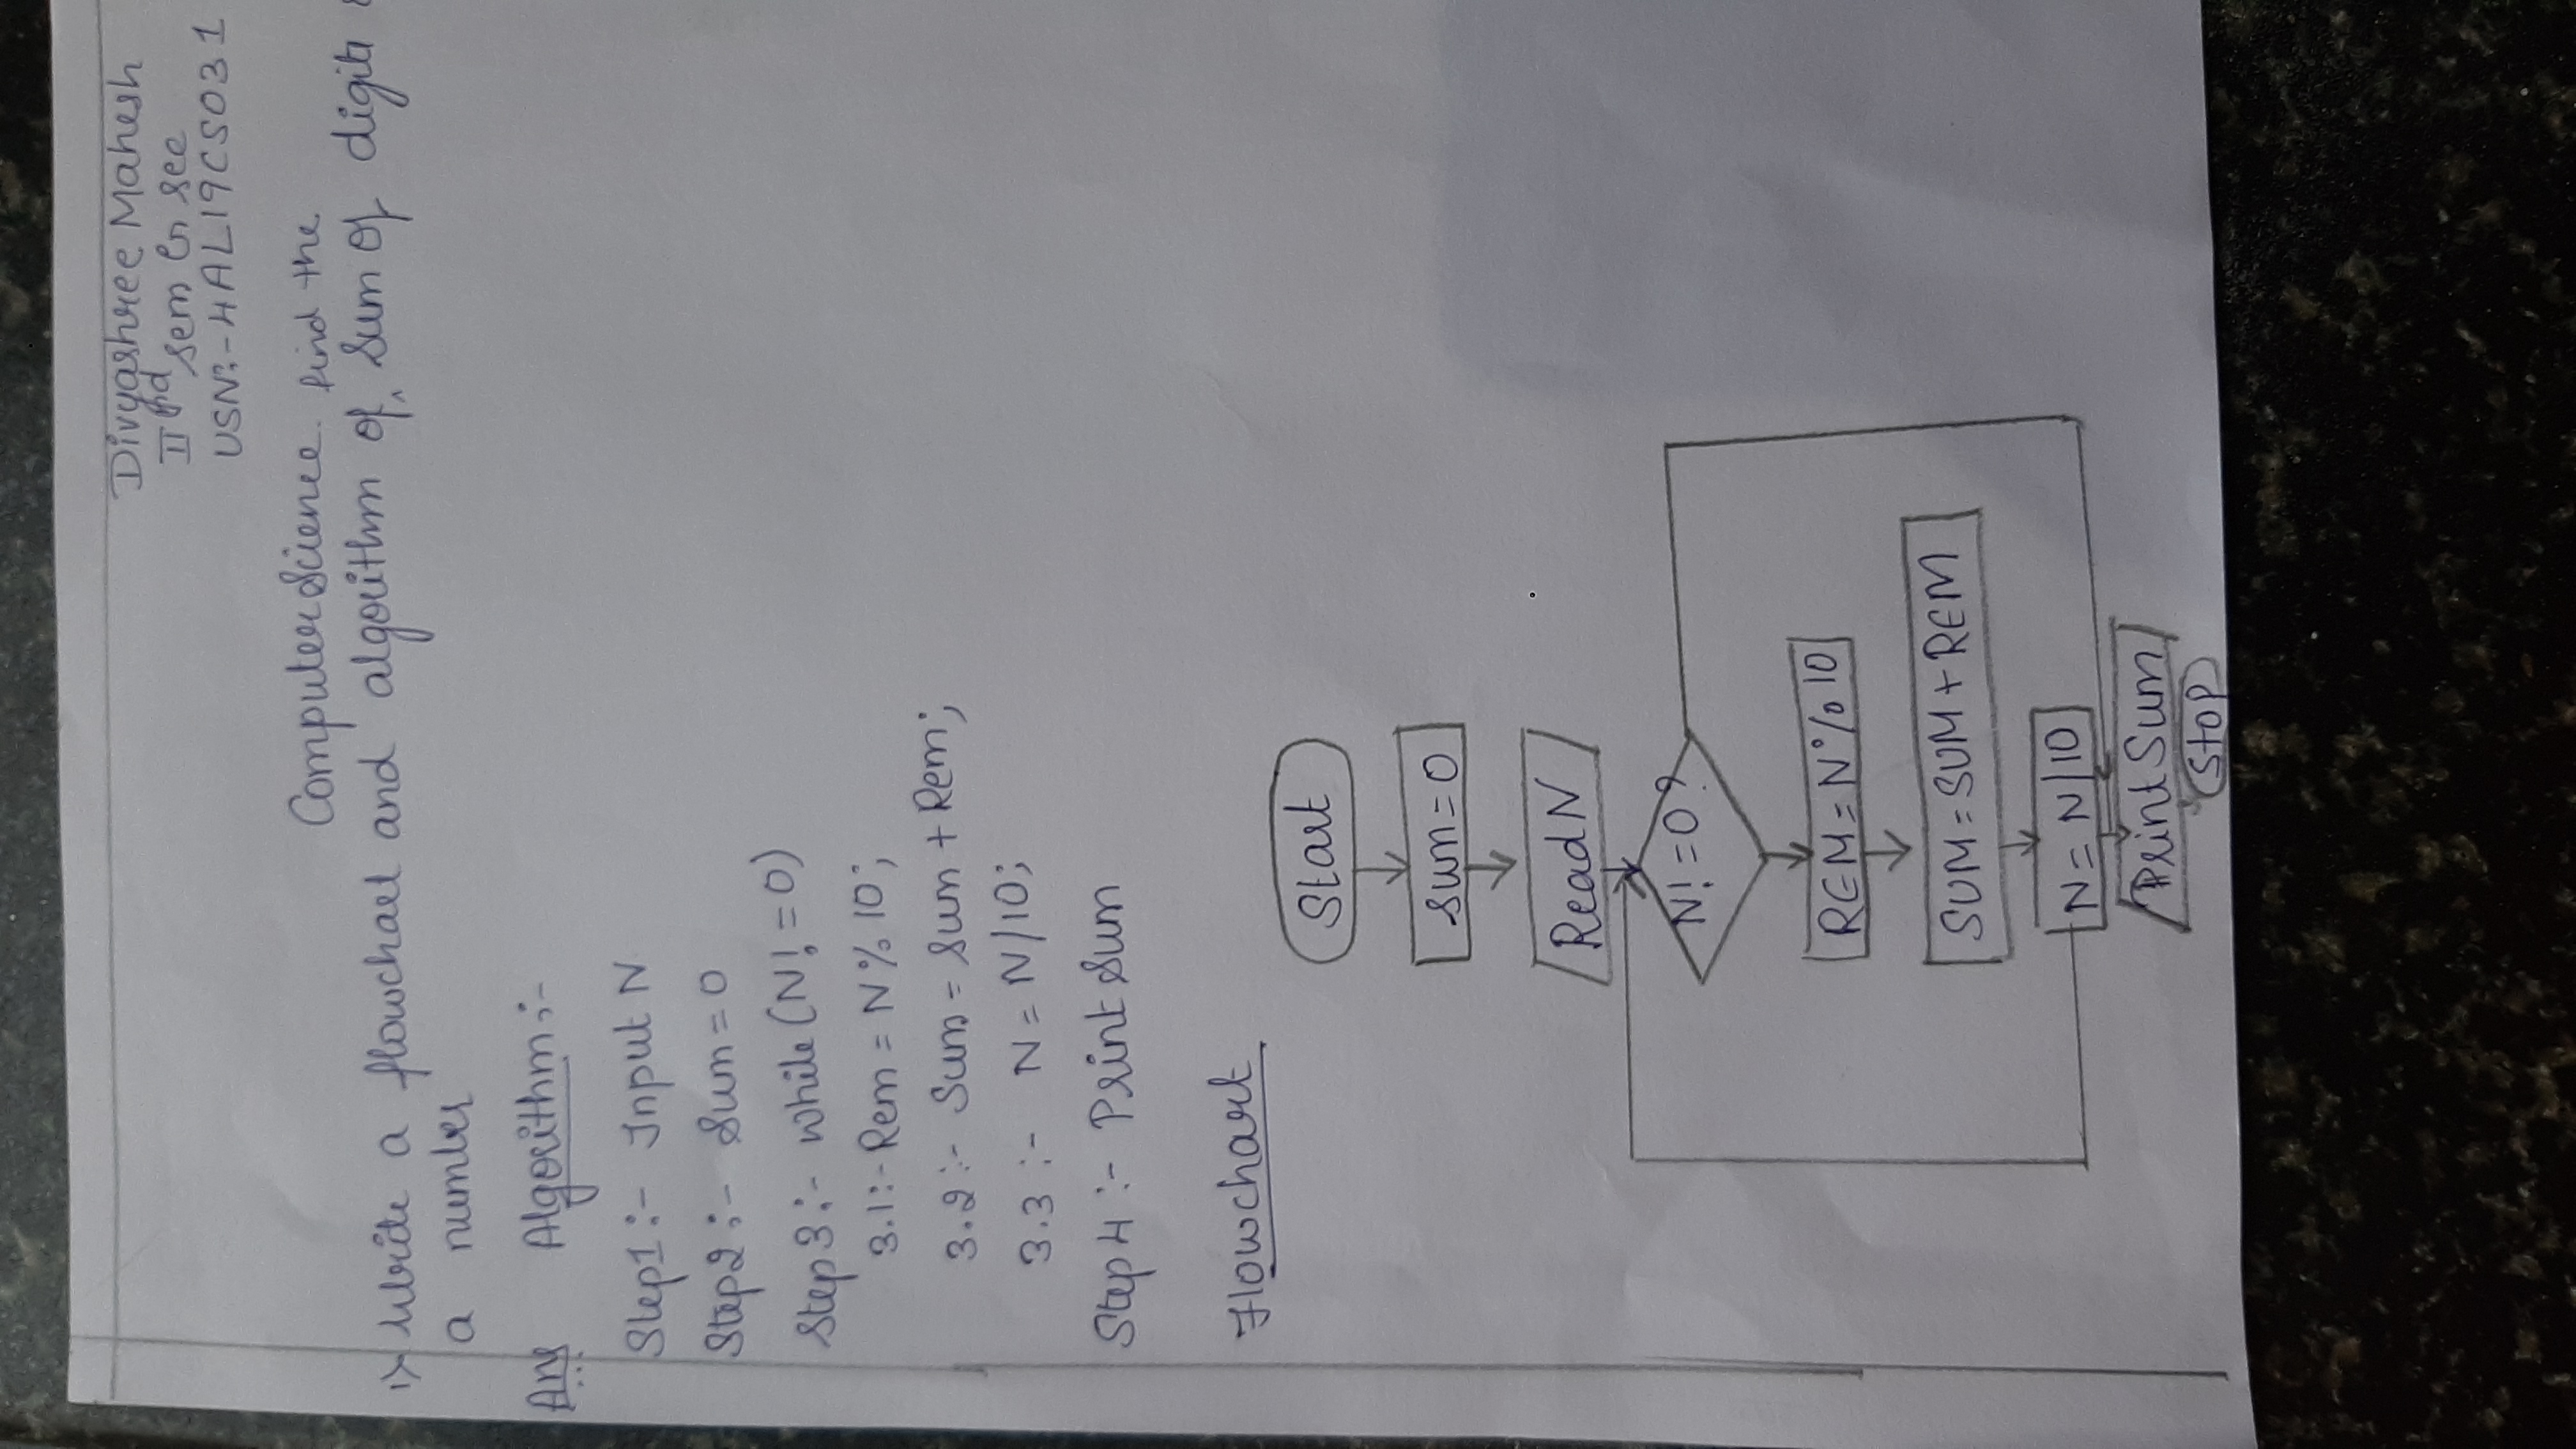 Divyashree Mahesh
IInd sem G sec
USN:-4AL19CS031
Computer Science
find the
1) Write a flowchart and algorithm of sum of digits
a number
Ans Algorithm:-
Step1:- Input N
Step2:- Sum=0
Step3:- while(N!=0)
3.1:- Rem=N%10;
3.2:- Sum=Sum+Rem;
3.3:- N=N/10;
Step4:- Print Sum
Flowchart
Start
sum=0
Read N
N!=0?
REM=N%10
SUM=SUM+REM
N=N/10
Print Sum
Stop